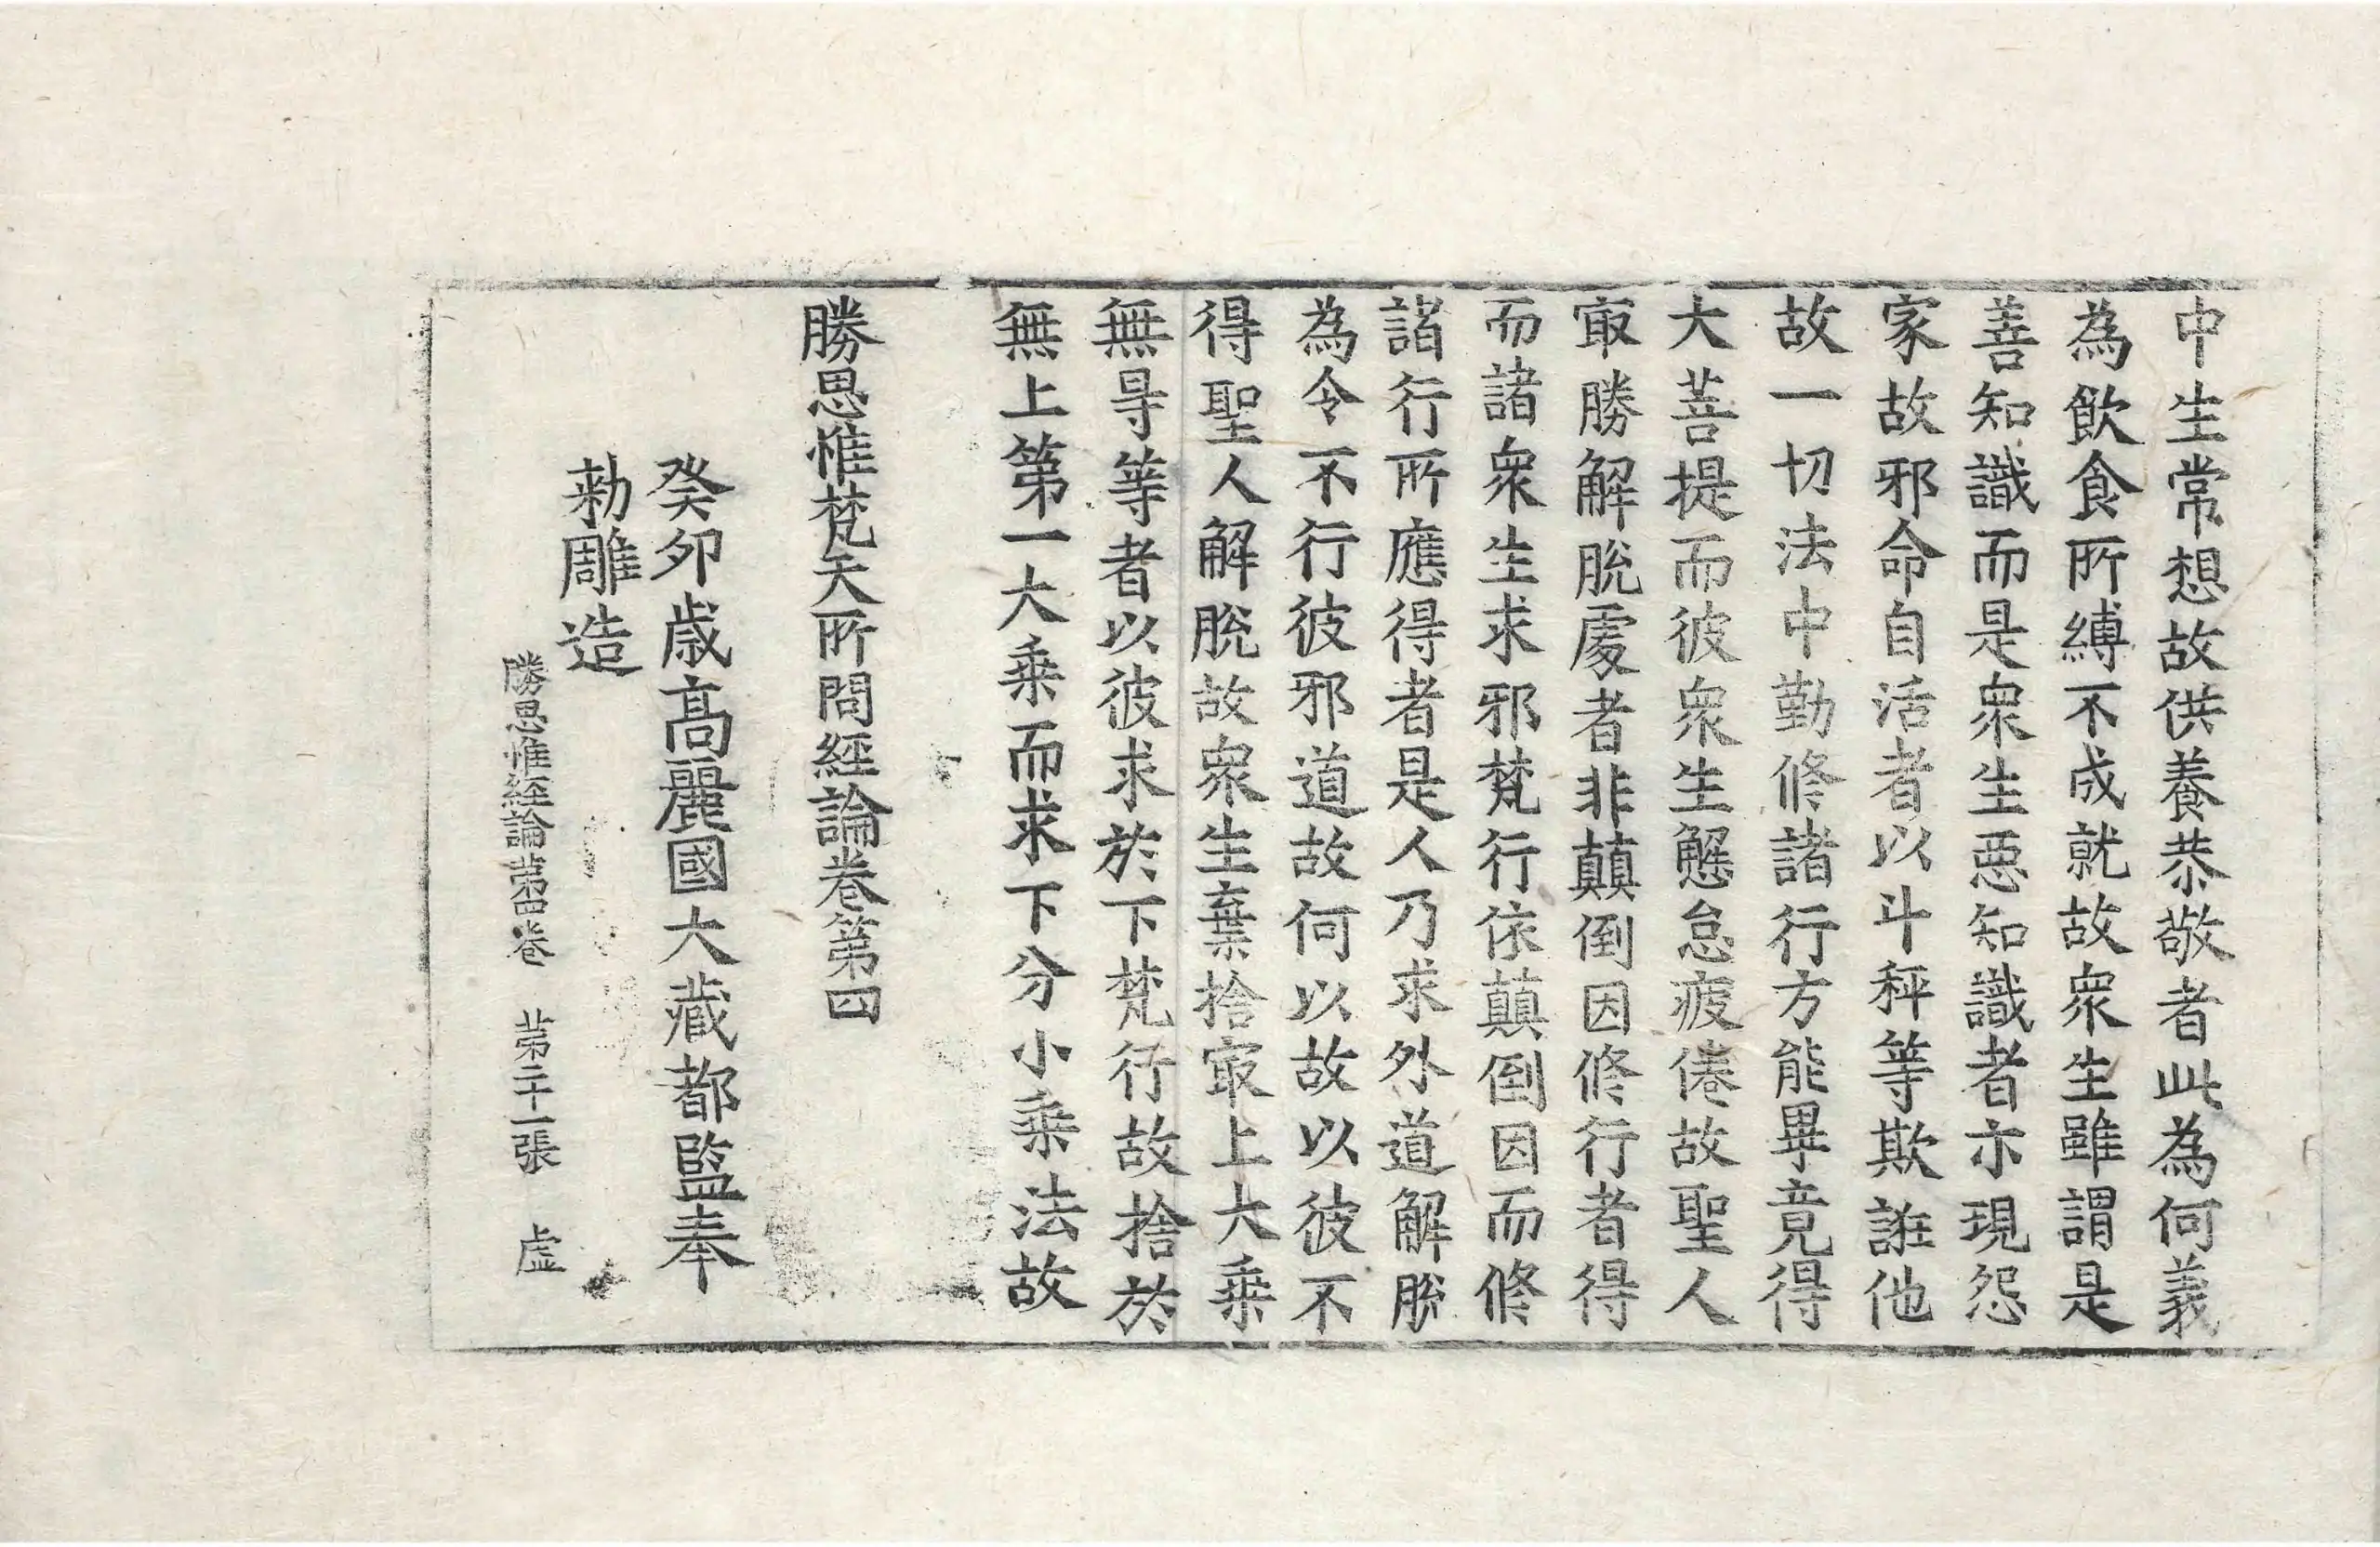 中生常想故供養恭敬者此為何義
為飮食所縛不成就故衆生雖謂是
善知識而是衆生惡知識者示現怨
家故邪命自活者以斗秤等欺誑他
故一切法中勤修諸行方能畢竟得
大菩提而彼衆生懈怠疲倦故聖人
㝡勝解脫處者非顛倒因修行者得
而諸衆生求邪梵行依顛倒因而修
諸行所應得者是人乃求外道解脫
為令不行彼邪道故何以故以彼不
得聖人解脫故衆生棄捨㝡上大乗
無㝵等者以彼求於下梵行故捨於
無上第一大乗而求下分小乗法故
勝思惟梵天所問經論卷第四
癸卯歳髙麗國大藏都監奉
勑雕造
勝思惟經論第四卷 第二十一張 虛